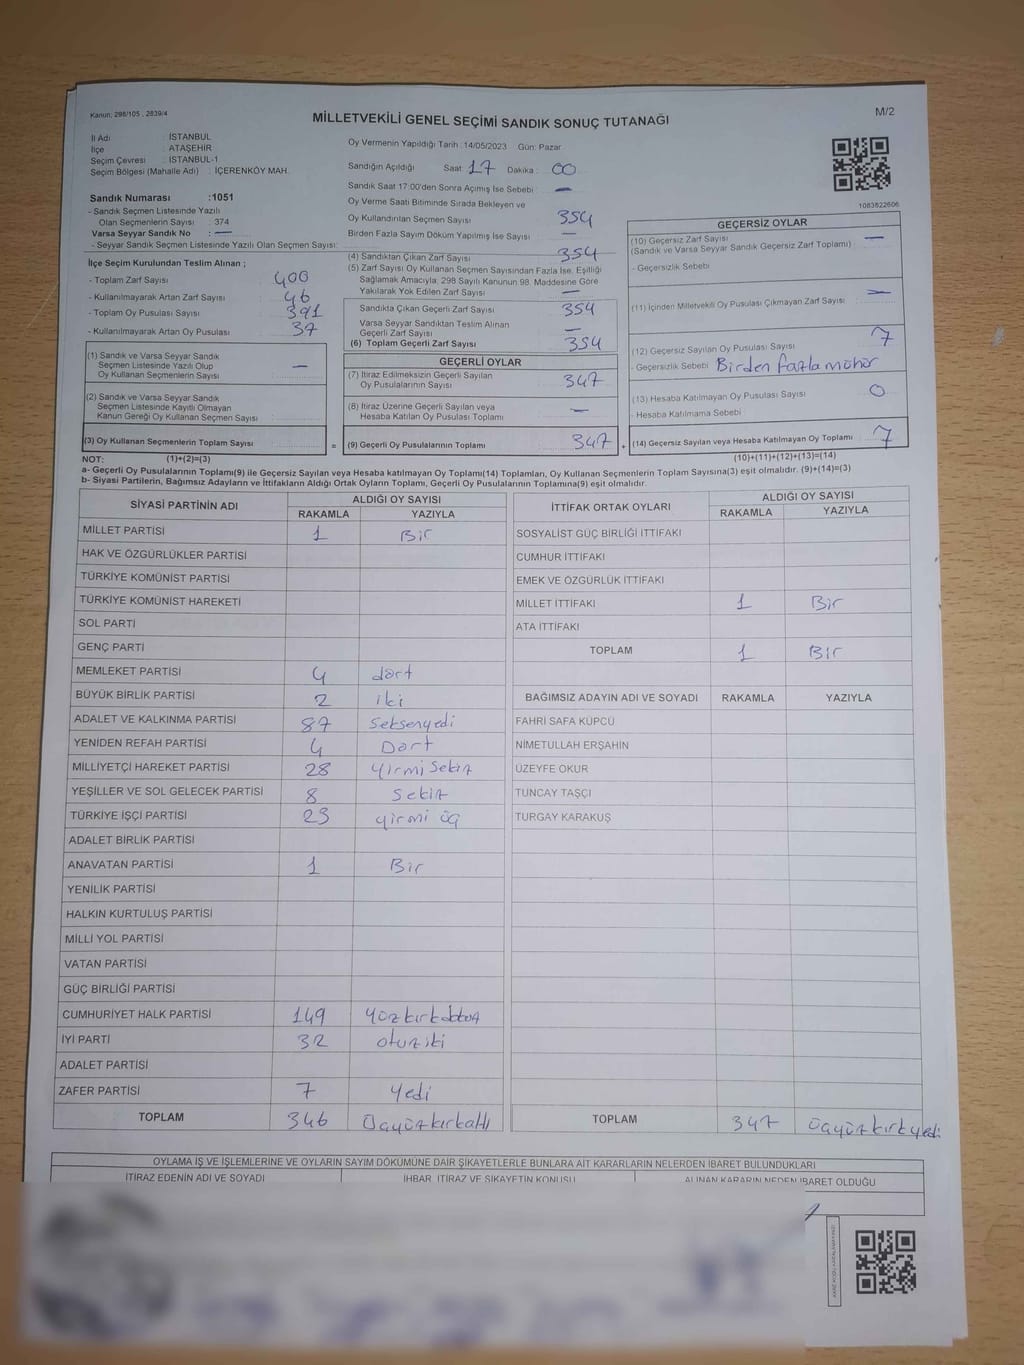 Kanun: 298/105 , 2839/4
MİLLETVEKİLİ GENEL SEÇİMİ SANDIK SONUÇ TUTANAĞI
M/2
İl Adı : İSTANBUL
İlçe : ATAŞEHİR
Seçim Çevresi : İSTANBUL-1
Seçim Bölgesi (Mahalle Adı) : İÇERENKÖY MAH.
Sandık Numarası :1051
- Sandık Seçmen Listesinde Yazılı
Olan Seçmenlerin Sayısı : 374
Varsa Seyyar Sandık No : —
- Seyyar Sandık Seçmen Listesinde Yazılı Olan Seçmen Sayısı:
İlçe Seçim Kurulundan Teslim Alınan ;
- Toplam Zarf Sayısı : 400
- Kullanılmayarak Artan Zarf Sayısı : 46
- Toplam Oy Pusulası Sayısı : 391
- Kullanılmayarak Artan Oy Pusulası : 37
(1) Sandık ve Varsa Seyyar Sandık
Seçmen Listesinde Yazılı Olup
Oy Kullanan Seçmenlerin Sayısı : —
(2) Sandık ve Varsa Seyyar Sandık
Seçmen Listesinde Kayıtlı Olmayan
Kanun Gereği Oy Kullanan Seçmen Sayısı :
(3) Oy Kullanan Seçmenlerin Toplam Sayısı =
Oy Vermenin Yapıldığı Tarih : 14/05/2023 Gün: Pazar
Sandığın Açıldığı Saat: 17 Dakika : 00
Sandık Saat 17:00'den Sonra Açımış İse Sebebi : —
Oy Verme Saati Bitiminde Sırada Bekleyen ve
Oy Kullandırılan Seçmen Sayısı : 354
Birden Fazla Sayım Döküm Yapılmış İse Sayısı : —
(4) Sandıktan Çıkan Zarf Sayısı : 354
(5) Zarf Sayısı Oy Kullanan Seçmen Sayısından Fazla İse, Eşitliği
Sağlamak Amacıyla, 298 Sayılı Kanunun 98. Maddesine Göre
Yakılarak Yok Edilen Zarf Sayısı : —
Sandıkta Çıkan Geçerli Zarf Sayısı : 354
Varsa Seyyar Sandıktan Teslim Alınan
Geçerli Zarf Sayısı : —
(6) Toplam Geçerli Zarf Sayısı : 354
GEÇERLİ OYLAR
(7) İtiraz Edilmeksizin Geçerli Sayılan
Oy Pusulalarının Sayısı : 347
(8) İtiraz Üzerine Geçerli Sayılan veya
Hesaba Katılan Oy Pusulası Toplamı : —
(9) Geçerli Oy Pusulalarının Toplamı : 347 +
1083822606
GEÇERSİZ OYLAR
(10) Geçersiz Zarf Sayısı : —
(Sandık ve Varsa Seyyar Sandık Geçersiz Zarf Toplamı)
- Geçersizlik Sebebi :
(11) İçinden Milletvekili Oy Pusulası Çıkmayan Zarf Sayısı : —
(12) Geçersiz Sayılan Oy Pusulası Sayısı : 7
- Geçersizlik Sebebi : Birden fazla mühür
(13) Hesaba Katılmayan Oy Pusulası Sayısı : 0
- Hesaba Katılmama Sebebi :
(14) Geçersiz Sayılan veya Hesaba Katılmayan Oy Toplamı : 7
NOT: (1)+(2)=(3) (10)+(11)+(12)+(13)=(14)
a- Geçerli Oy Pusulalarının Toplamı(9) ile Geçersiz Sayılan veya Hesaba katılmayan Oy Toplamı(14) Toplamları, Oy Kullanan Seçmenlerin Toplam Sayısına(3) eşit olmalıdır. (9)+(14)=(3)
b- Siyasi Partilerin, Bağımsız Adayların ve İttifakların Aldığı Ortak Oyların Toplamı, Geçerli Oy Pusulalarının Toplamına(9) eşit olmalıdır.
SİYASİ PARTİNİN ADI ALDIĞI OY SAYISI
RAKAMLA YAZIYLA
MİLLET PARTİSİ 1 Bir
HAK VE ÖZGÜRLÜKLER PARTİSİ
TÜRKİYE KOMÜNİST PARTİSİ
TÜRKİYE KOMÜNİST HAREKETİ
SOL PARTİ
GENÇ PARTİ
MEMLEKET PARTİSİ 4 dört
BÜYÜK BİRLİK PARTİSİ 2 iki
ADALET VE KALKINMA PARTİSİ 87 Seksenyedi
YENİDEN REFAH PARTİSİ 4 Dört
MİLLİYETÇİ HAREKET PARTİSİ 28 yirmi Sekiz
YEŞİLLER VE SOL GELECEK PARTİSİ 8 Sekiz
TÜRKİYE İŞÇİ PARTİSİ 23 yirmi üç
ADALET BİRLİK PARTİSİ
ANAVATAN PARTİSİ 1 Bir
YENİLİK PARTİSİ
HALKIN KURTULUŞ PARTİSİ
MİLLİ YOL PARTİSİ
VATAN PARTİSİ
GÜÇ BİRLİĞİ PARTİSİ
CUMHURİYET HALK PARTİSİ 149 Yüzkırkdokuz
İYİ PARTİ 32 otuziki
ADALET PARTİSİ
ZAFER PARTİSİ 7 Yedi
TOPLAM 346 Üçyüzkırkaltı
İTTİFAK ORTAK OYLARI ALDIĞI OY SAYISI
RAKAMLA YAZIYLA
SOSYALİST GÜÇ BİRLİĞİ İTTİFAKI
CUMHUR İTTİFAKI
EMEK VE ÖZGÜRLÜK İTTİFAKI
MİLLET İTTİFAKI 1 Bir
ATA İTTİFAKI
TOPLAM 1 Bir
BAĞIMSIZ ADAYIN ADI VE SOYADI RAKAMLA YAZIYLA
FAHRİ SAFA KÜPCÜ
NİMETULLAH ERŞAHİN
ÜZEYFE OKUR
TUNCAY TAŞÇI
TURGAY KARAKUŞ
TOPLAM 347 üçyüzkırkyedi
OYLAMA İŞ VE İŞLEMLERİNE VE OYLARIN SAYIM DÖKÜMÜNE DAİR ŞİKAYETLERLE BUNLARA AİT KARARLARIN NELERDEN İBARET BULUNDUKLARI
İTİRAZ EDENİN ADI VE SOYADI İHBAR, İTİRAZ VE ŞİKAYETİN KONUSU ALINAN KARARIN NEDEN İBARET OLDUĞU